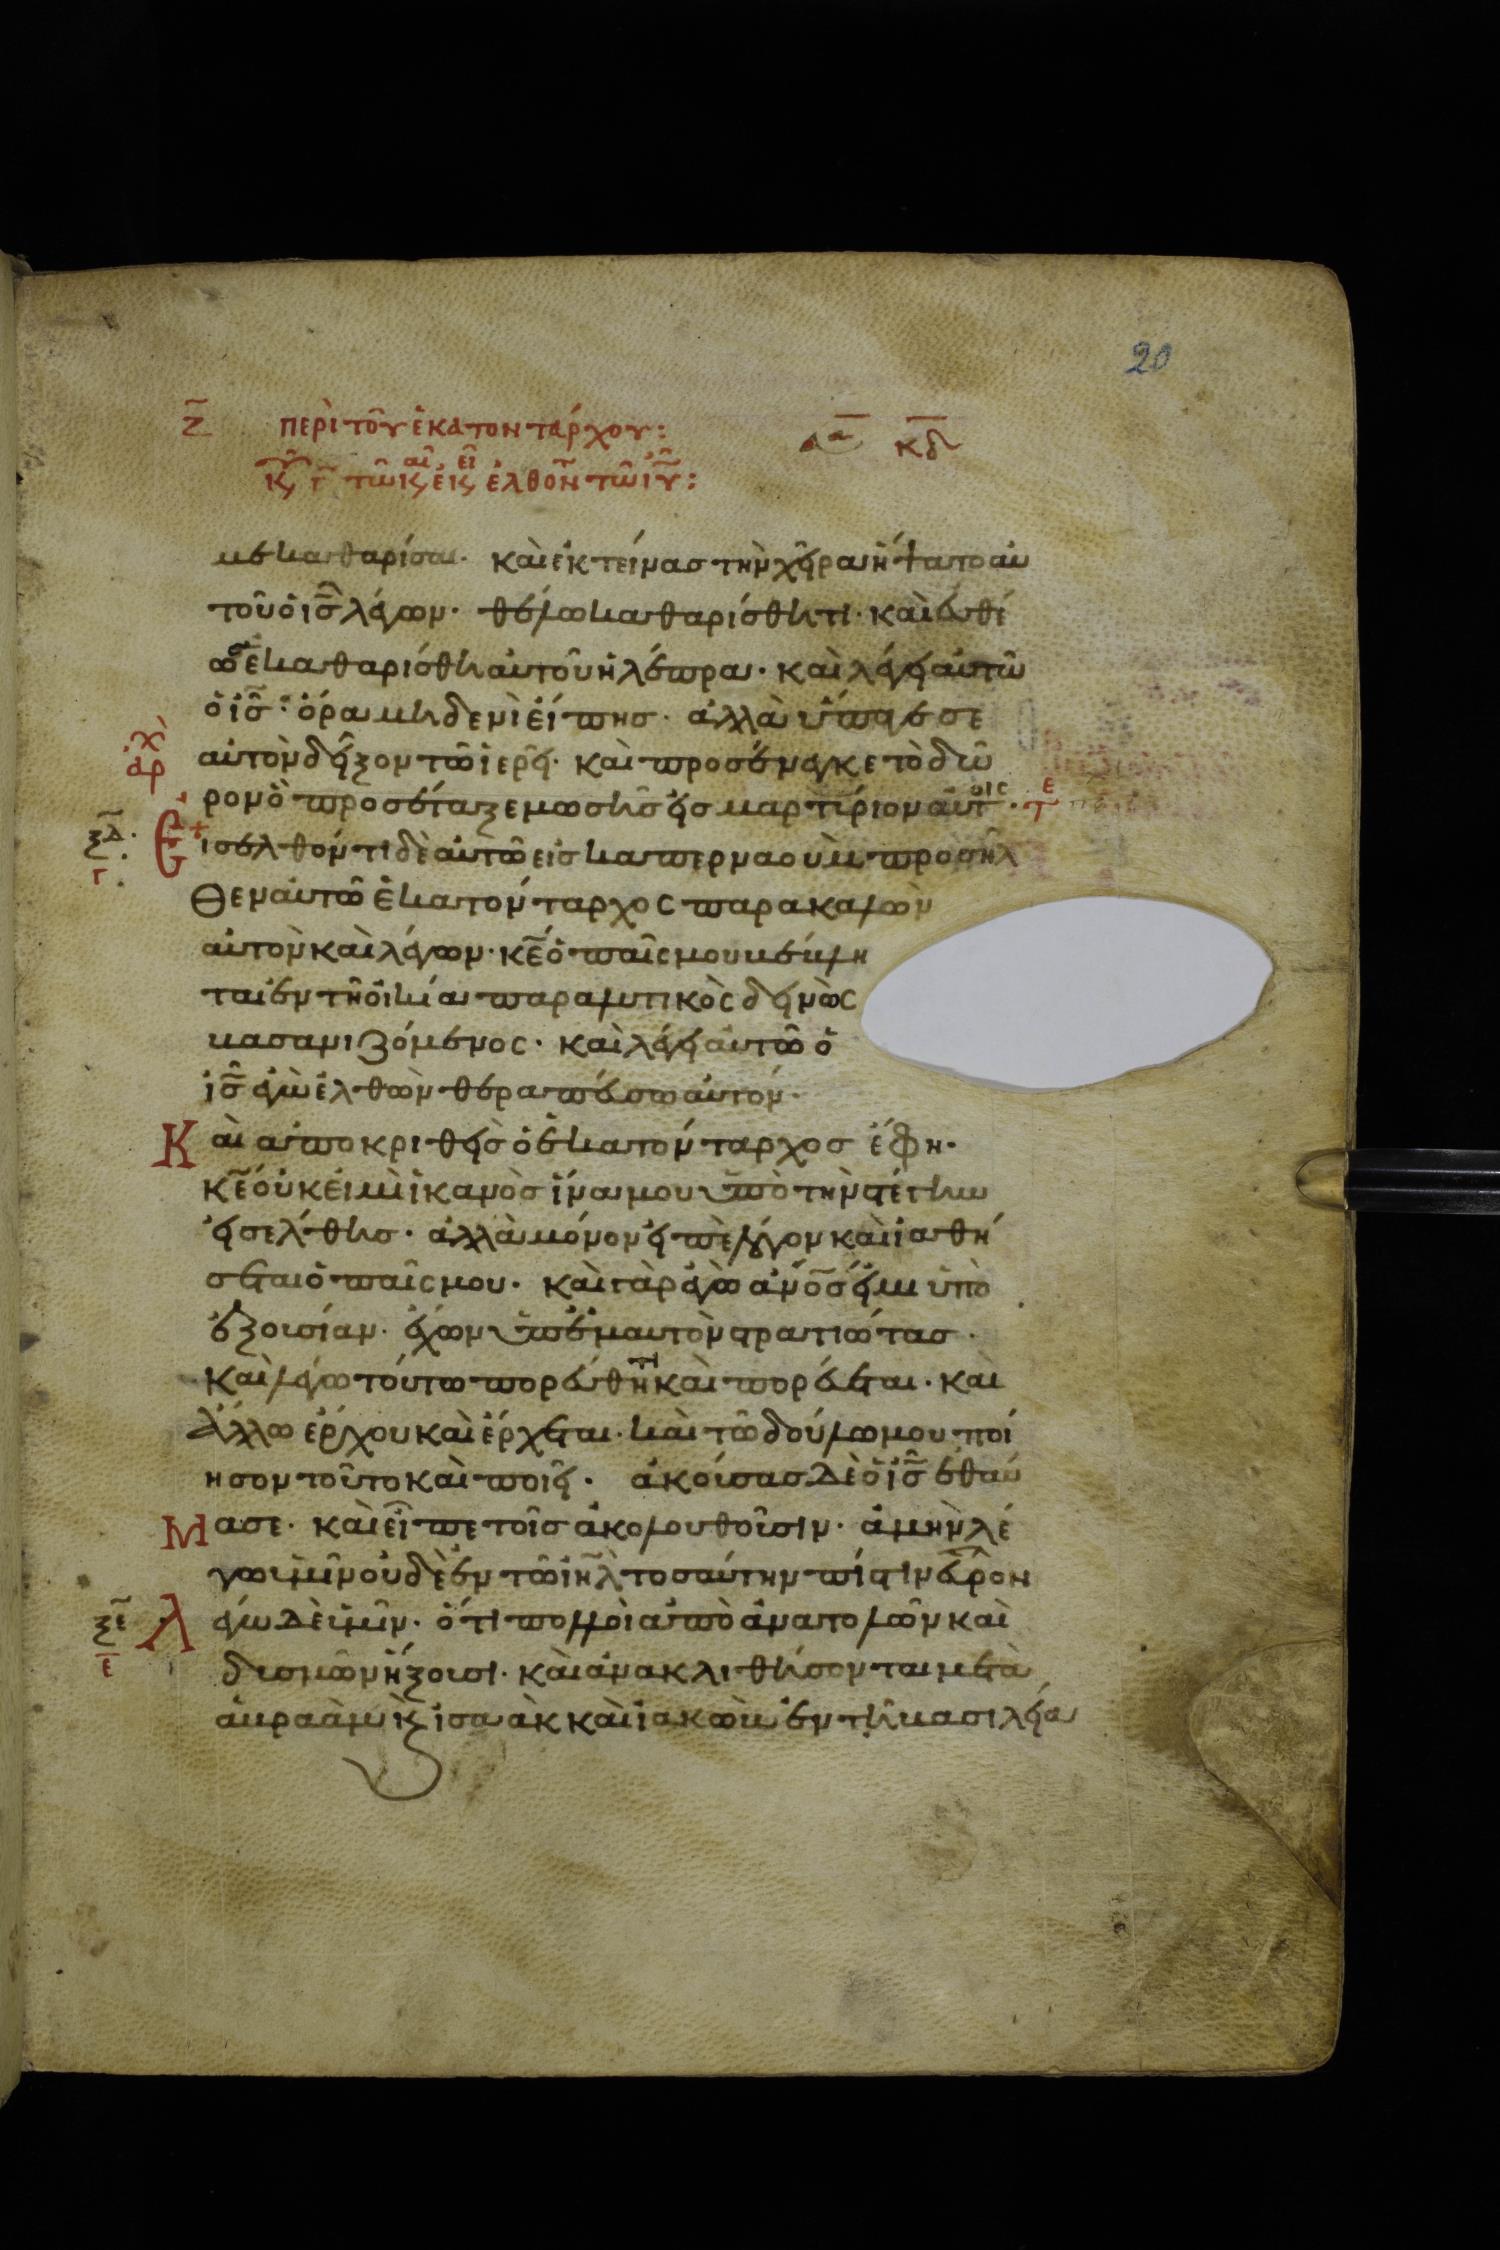 20
ζ̅ περὶ τοῦ ἑκατοντάρχου:
κδ̅
με καθαρίσαι· καὶ ἐκτείνας τὴν χεῖρα ἥψατο αὐ
τοῦ ὁ ι̅ς̅ λέγων· θέλω καθαρίσθητι· καὶ εὐθέ
ως ἐκαθαρίσθη αὐτοῦ ἡ λέπρα· καὶ λέγει αὐτῶ
ὁ ι̅ς̅· ὅρα μηδενὶ εἴπης· ἀλλὰ ὕπαγε σε
αὐτὸν δεῖξον τῶ ἱερεῖ· καὶ προσένεγκε τὸ δῶ
ρον ὃ προσέταξε μωσῆς εἰς μαρτύριον αὐτοῖς·
ξδ̅ γ̅ Εἰσελθόντι δὲ αὐτῶ εἰς καπερναοὺμ προσῆλ
θεν αὐτῶ ἑκατόνταρχος παρακαλῶν
αὐτὸν καὶ λέγων· κ̅ε̅ ὁ παῖς μου βέβλη
ται ἐν τῆ οἰκία παραλυτικὸς δεινῶς
βασανιζόμενος· καὶ λέγει αὐτῶ ὁ
ι̅ς̅ ἐγὼ ἐλθὼν θεραπεύσω αὐτόν·
Καὶ ἀποκριθεὶς ὁ ἑκατόνταρχος ἔφη·
κ̅ε̅ οὐκ εἰμὶ ἱκανὸς ἵνα μου ὑπὸ τὴν στέγην
εἰσέλθης· ἀλλὰ μόνον εἰπὲ λόγον καὶ ἰαθή
σεται ὁ παῖς μου· καὶ γὰρ ἐγὼ α̅ν̅ο̅ς̅ εἰμι ὑπὸ
ἐξουσίαν· ἔχων ὑπ' ἐμαυτὸν στρατιώτας·
καὶ λέγω τούτω πορεύθητι καὶ πορεύεται· καὶ
ἄλλω ἔρχου καὶ ἔρχεται· καὶ τῶ δούλω μου ποί
ησον τοῦτο καὶ ποιεῖ· ἀκούσας δὲ ὁ ι̅ς̅ ἐθαύ
Μασε· καὶ εἶπε τοῖς ἀκολουθοῦσιν· ἀμὴν λέ
γω ὑμῖν οὐδὲ ἐν τῶ ι̅η̅λ̅ τοσαύτην πίστιν εὗρον
ξε̅ ε̅ Λέγω δὲ ὑμῖν· ὅτι πολλοὶ ἀπὸ ἀνατολῶν καὶ
δυσμῶν ἥξουσι· καὶ ἀνακλιθήσονται μετὰ
ἀβραὰμ κ(αὶ) ἰσαὰκ καὶ ἰακὼβ ἐν τῆ βασιλεία